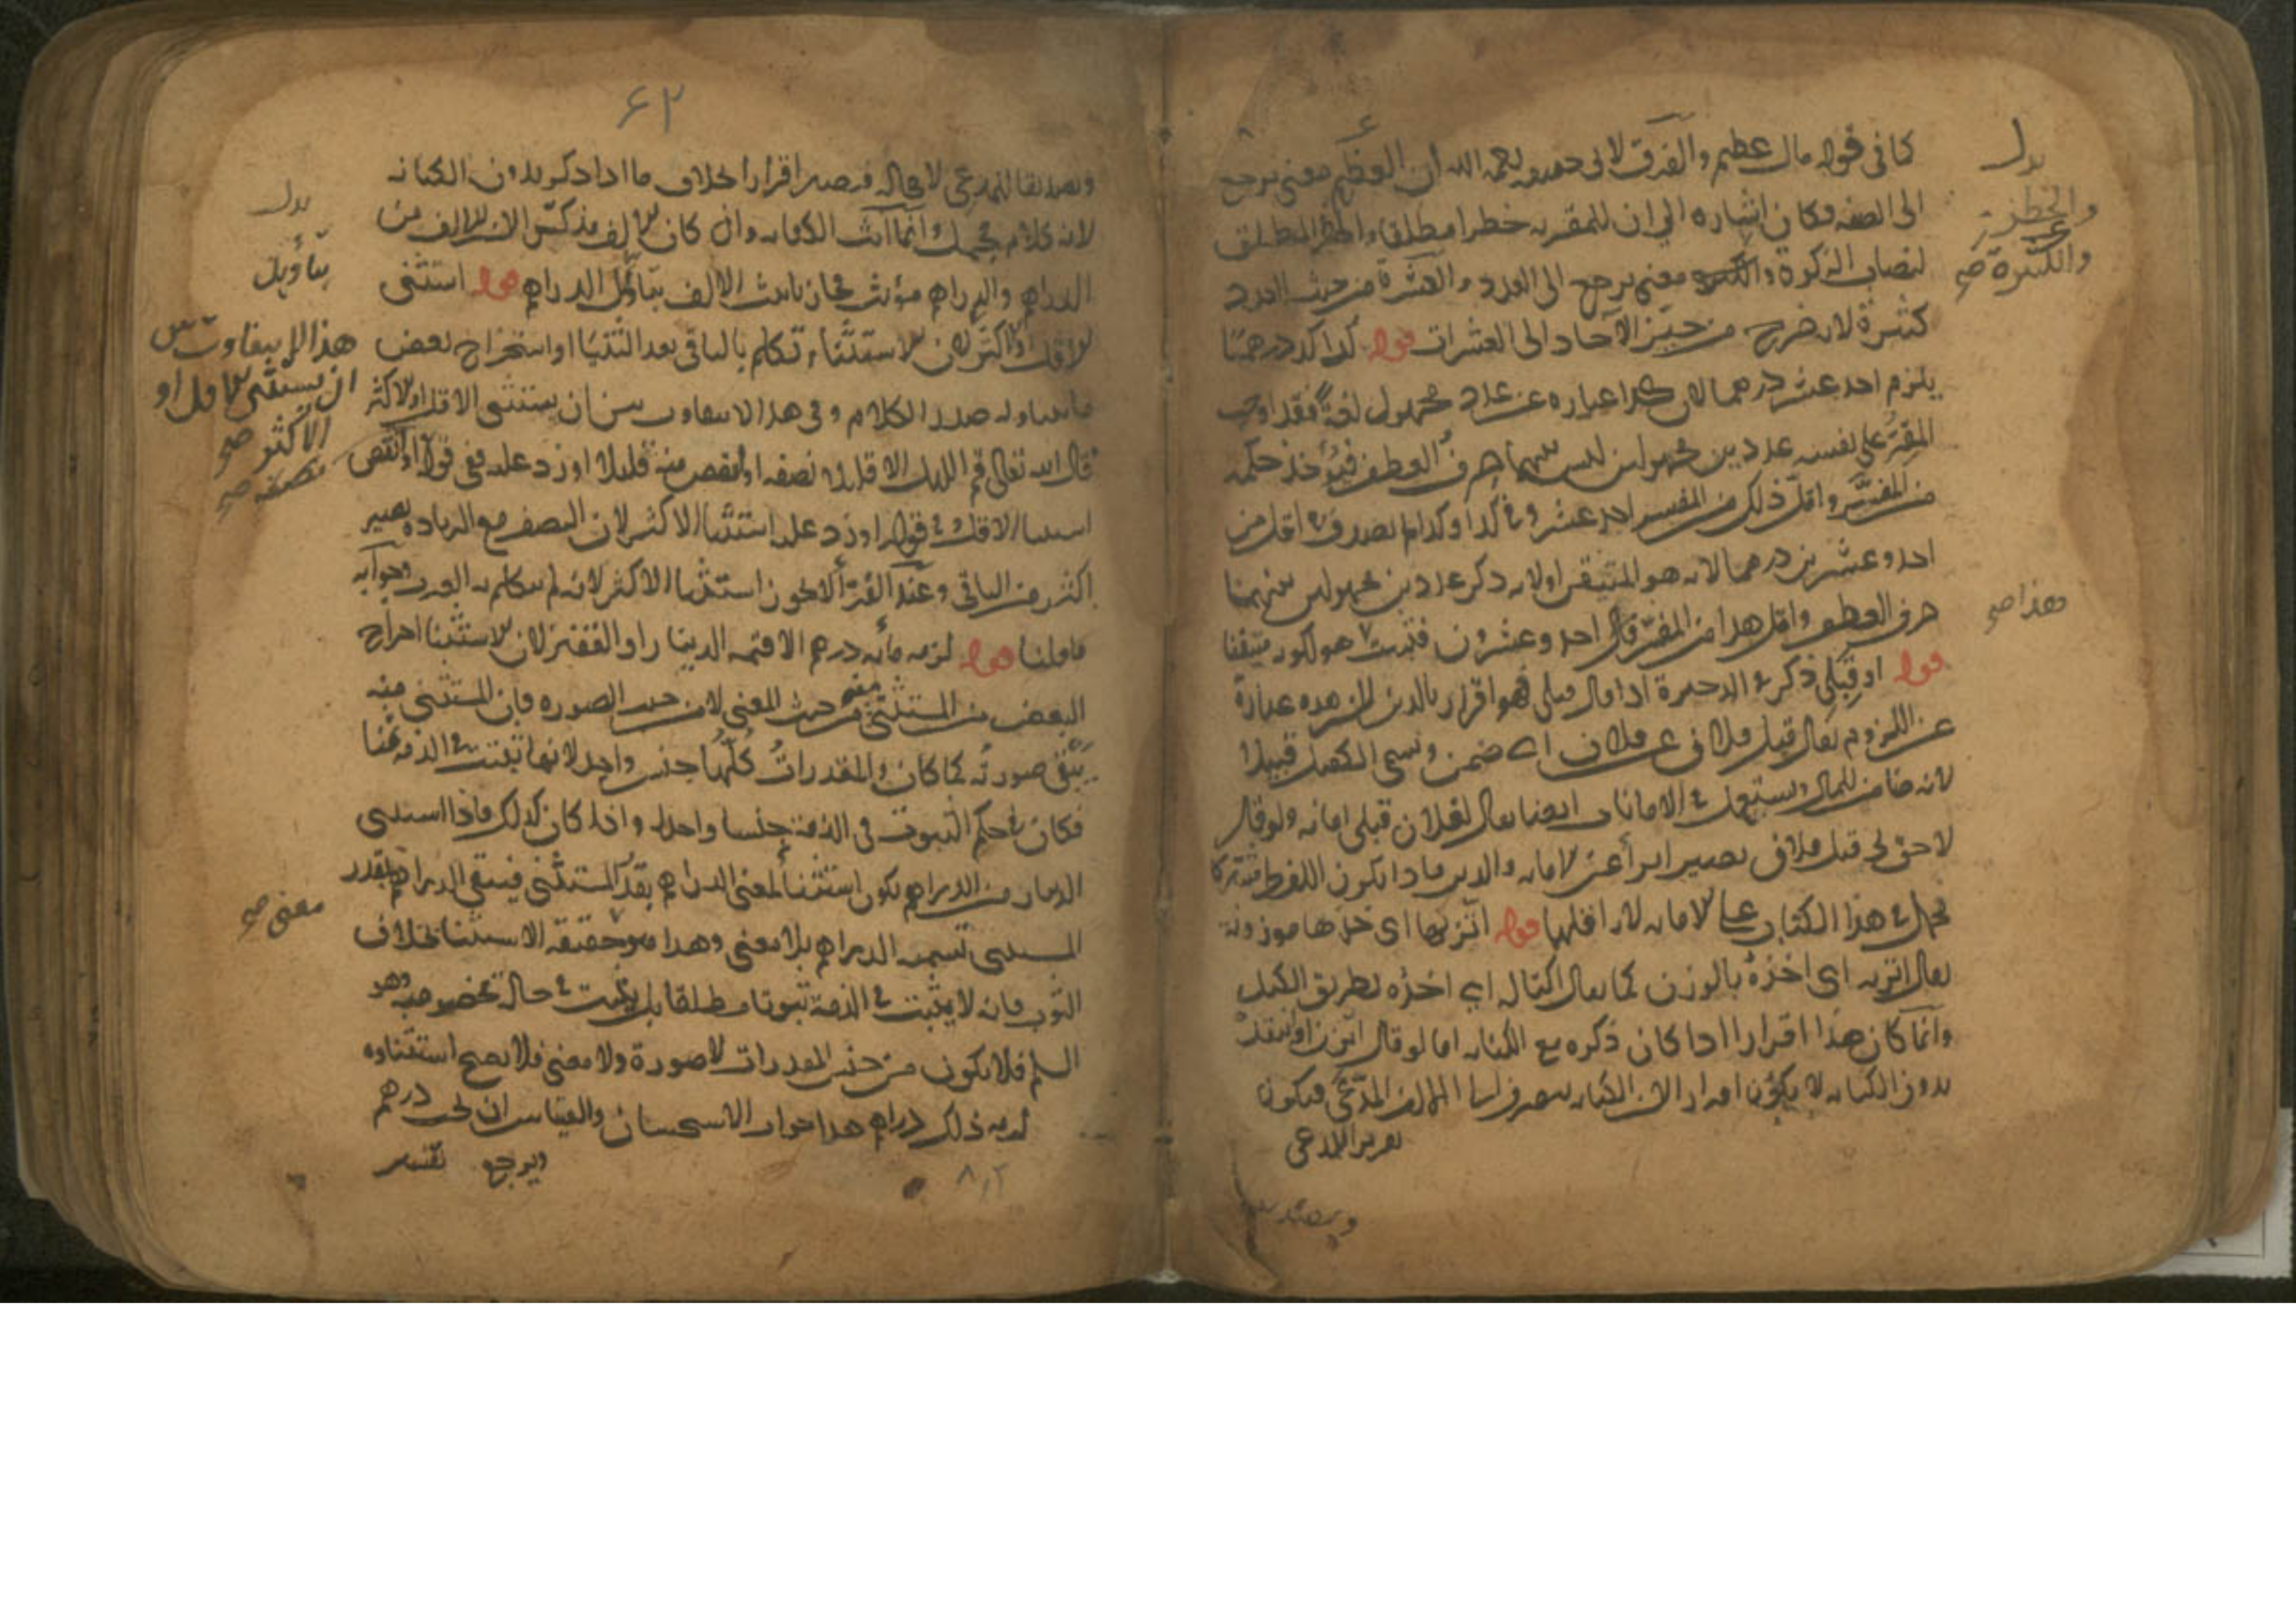 كما في قوله مال عظيم والفرق لابي حنيفة رحمه الله ان العظم معنى يرجع
الى الصفة فكان اشاره الى ان للمقر به خطرا مطلقا والخطر المطلق
لنصاب الزكوة والكثرة معنى يرجع الى العدد والعشرة من حيث العدد
كثيرة لانه يخرج من حيز الآحاد الى العشرات قوله كذا كذا درهما
يلزم احد عشر درهما لان كذا عباره عن عدد مجهول لغة فقد اوجب
المقر على نفسه عددين مجهولين ليس بينهما حرف العطف فيؤخذ حكمه
من المفسر واقل ذلك من المفسر احد عشر وفي كذا وكذا لم يصدق في اقل من
احد وعشرين درهما لانه هو المتيقن اولانه ذكر عددين مجهولين بينهما
حرف العطف واقل هذا من المفسر قال احد وعشرون فثبت هو لكونه متيقنا
قوله او قبلي ذكر في الذخيرة اذا قال قبلي فهو اقرار بالدين لان هذه عبارة
عن اللزوم يقال قبل فلان عن فلان اي ضمن ويسمى الكفيل قبيلا
لانه ضامن للمال ويستعمل في الامانات ايضا يقال لفلان قبلي امانه ولو قال
لا حق لي قبل فلان يصير ابرأ عن الامانه والدين فاذا يكون اللفظ مشتركا
في هذا الكتاب على الامانه لانه اقلها قوله اتزنها اي خذها موزونة
يقال اتزنه اي اخذه بالوزن كما يقال اكتاله اي اخذه بطريق الكيل
وانما كان هذا اقرارا اذا كان ذكره مع الكنايه اما لو قال اتزن او انتقد
بدون الكنايه لا يكون اقرارا لان الكنايه ينصرف الى المال المدعى فيكون
تقرير المدعى
بدل
والخطر
والكثرة صح
هذا صح
۶۲
وتصديقا للمدعى لا محاله فيصير اقرارا بخلاف ما اذا ذكر بدون الكنايه
لانه كلام محتمل وانما انث الكنايه وان كان الالف مذكر لان الالف من
الدراهم والدراهم مؤنث فجاز تأنيث الالف بتأويل الدراهم قوله استثنى
الاقل او الاكثر لان الاستثناء تكلم بالباقي بعد الثنيا او استخراج بعض
ما تناوله صدر الكلام وفي هذا لا يتفاوت بين ان يستثنى الاقل او الاكثر
قال الله تعالى قم الليل الا قليلا نصفه او انقص منه قليلا او زد عليه ففي قوله او انقص
استثنا الاقل وفي قوله او زد عليه استثنا الاكثر لان النصف مع الزيادة يصير
اكثر من الباقي وعند الفرأ لا يجوز استثنا الاكثر لانه لم يتكلم به العرب وجوابه
ما قلنا قوله لزمه مائه درهم الا قيمه الدينار او القفيز لان الاستثنا اخراج
البعض من المستثنى منه من حيث المعنى لا من حيث الصوره فان المستثنى منه
يبقى صورته كما كان والمقدرات كلها جنس واحد لانها تثبت في الذمه ثمنا
فكان في حكم الثبوت في الذمة جنسا واحدا واذا كان كذلك فاذا استثنى
الدينار من الدراهم يكون استثنا لمعنى الدراهم بقدر المستثنى فيبقى الدراهم بقدر
المستثنى تسمية الدراهم بلا معنى وهذا هو حقيقة الاستثنا بخلاف
الثوب فانه لا يثبت في الذمة ثبوتا مطلقا بل يثبت في حالة مخصوصه وهو
السلم فلا يكون من جنس المقدرات لا صورة ولا معنى فلا يصح استثناوه
لزمه ذلك دراهم هذا جواب الاستحسان والقياس ان يجب درهم
ويرجع
بدل
بتأويل
هذا لا يتفاوت بين
ان يستثنى الاقل او
الاكثر صح
نصفه صح
معنى صح